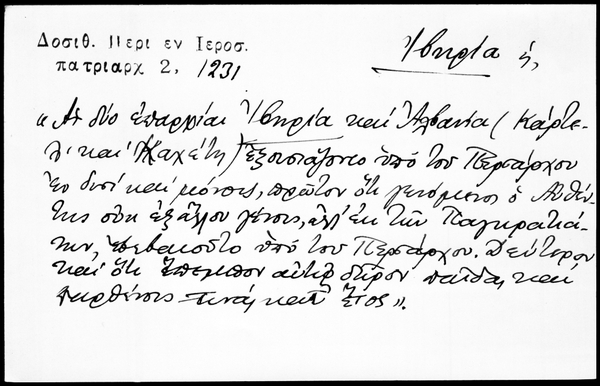 Δοσιθ. Περι εν Ιεροσ.
πατριαρχ 2, 1231
Ἰβηρία ἡ,
« Αἱ δύο ἐπαρχίαι Ἰβηρία καὶ Ἀλβανία (Κάρτε-
λ· καὶ Καχέτη) ἐξουσιάζοντο ὑπὸ τοῦ Περσάρχου
ἐν δυσὶ καὶ μόνοις, πρῶτον ὅτι γενόμενος ὁ Αὐθέν-
της οὐκ ἐξ ἄλλου γένους, ἀλλ' ἐκ τῶν Παγκρατιά-
νων, ὑπὸ τοῦ Περσάρχου. Δεύτερον
καὶ ὅτι ἔπεμπον αὐτῷ δῶρον παῖδας καὶ
παρθένους τινὰς κατ' ἔτος ».